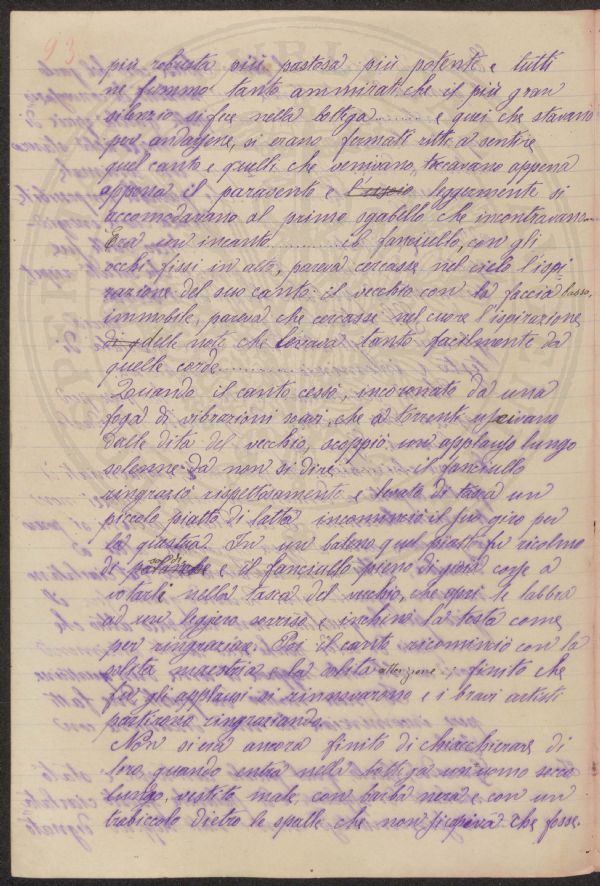 93
più robusta più pastosa più potente e tutti
ne fummo tanto ammirati che il più gran
silenzio si fece nella bottega........ e quei che stavano
per andarsene, si erano fermati ritti a sentire
quel canto e quelli che venivano, toccavano appena
appena il paravento e l'uscio leggermente si
accomodavano al primo sgabello che incontravano
Era un incanto............. il fanciullo, con gli
occhi fissi in alto, pareva cercasse nel cielo l'ispi
razione del suo canto: il vecchio con la faccia bassa,
immobile, pareva che cercasse nel cuore l'ispirazione
delle note che levava tanto facilmente da
quelle corde.................
Quando il canto cessò, incoronato da una
foga di vibrazioni soavi, che a torrenti uscivano
dalle dita del vecchio, scoppiò un applauso lungo
solenne da non si dire........ il fanciullo
ringraziò rispettosamente e levato di tasca un
piccolo piatto di latta incominciò il suo giro per
la giostra. In un baleno quel piatto fu ricolmo
di soldi e il fanciullo pieno di gioia corse a
votarli nella tasca del vecchio, che aprì le labbra
ad un leggero sorriso e inchinò la testa come
per ringraziare. Poi il canto ricominciò con la
solita maestria e la solita attenzione: finito che
fu, gli applausi si rinnovarono e i bravi artisti
partirono ringraziando.
Non si era ancora finito di chiacchierare di
loro, quando entra nella bottega un uomo secco
lungo, vestito male, con barba nera e con un
trabiccolo dietro le spalle che non si capiva che fosse.